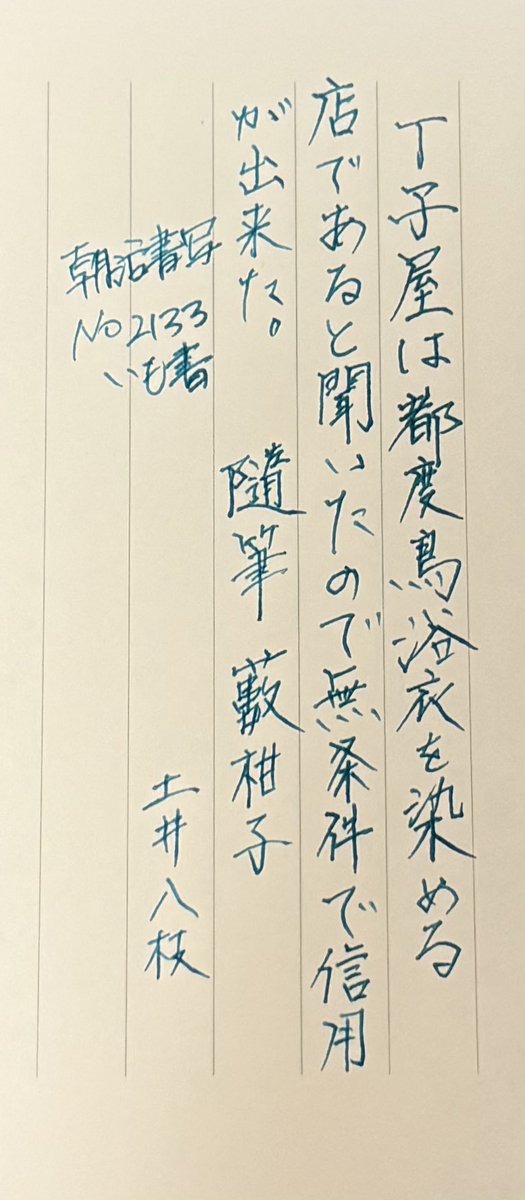 丁子屋は都度鳥浴衣を染める
店であると聞いたので無条件で信用
が出来た。
随筆 藪柑子
土井八枝
朝活書写
No 2133
いも書